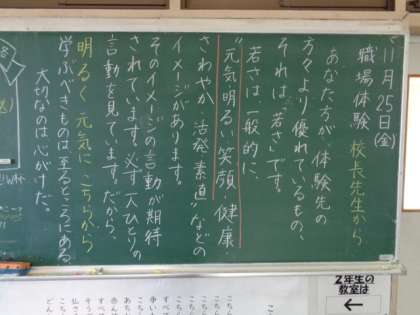 11月25日(金)
職場体験 校長先生から
あなた方が、体験先の
方々より優れているもの、
それは"若さ"です。
若さは一般的に、
"元気 明るい 笑顔 健康・
さわやか 活発 素直"などの
イメージがあります。
そのイメージの言動が期待
されています。必ず一人ひとりの
言動を見ています。だから、
明るく 元気に こちらから
学ぶべきものは至るところにある。
大切なのは心がけだ。
2年生の
教室は
←